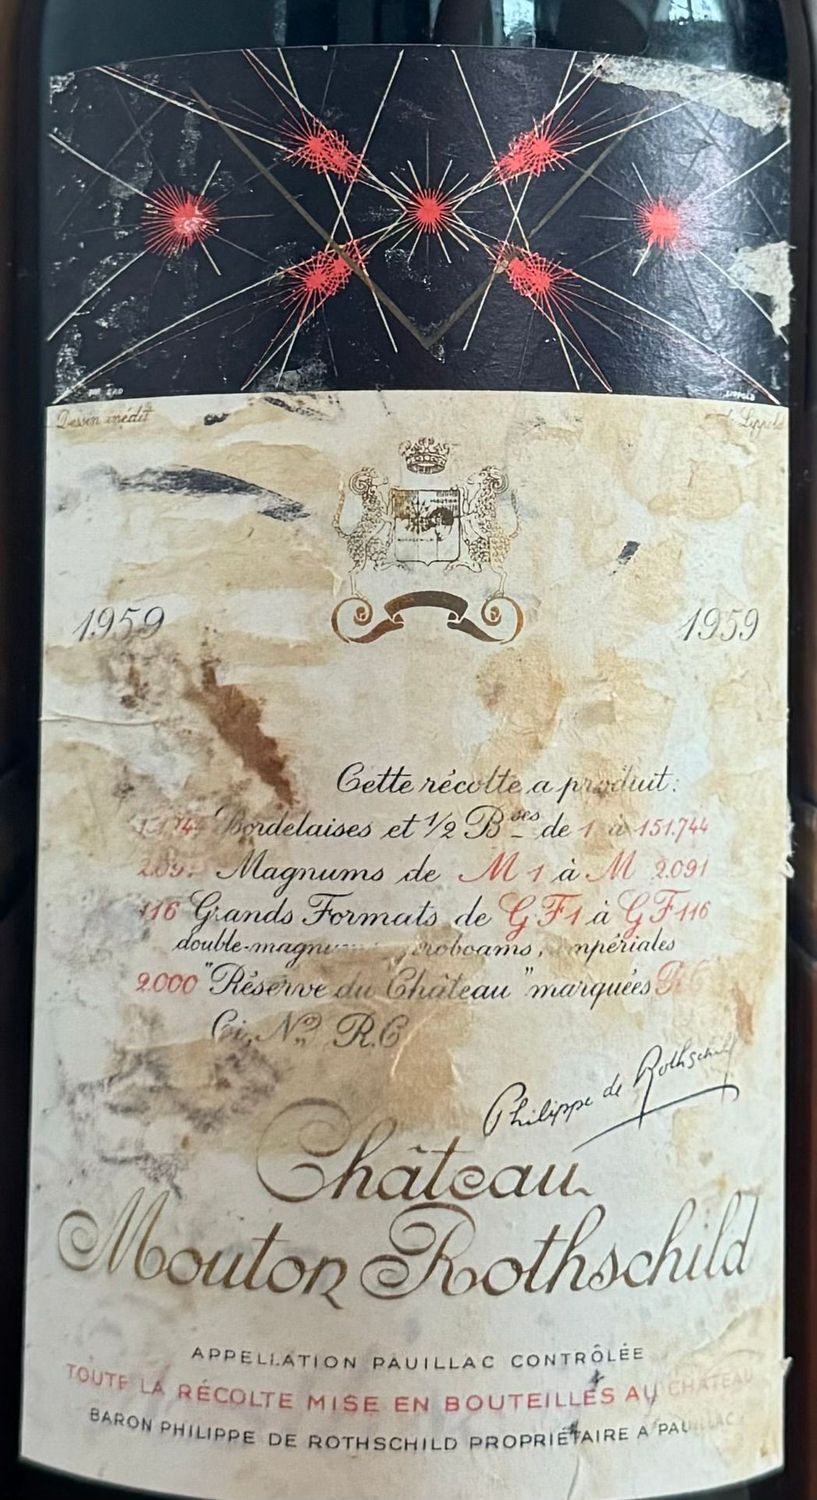 LIPPOLD
Dessin inédit de Lippold
MOUTON
ROTHSCHILD
1959 1959
Cette récolte a produit:
Bordelaises et 1/2 Bses de 1 à 151.744
Magnums de M 1 à M 2.091
116 Grands Formats de GF1 à GF116
double-magnums, jéroboams, impériales
2.000 "Réserve du Château" marquées R.C
Ci, No R.C
Philippe de Rothschild
Château
Mouton Rothschild
APPELLATION PAUILLAC CONTRÔLÉE
TOUTE LA RÉCOLTE MISE EN BOUTEILLES AU CHATEAU
BARON PHILIPPE DE ROTHSCHILD PROPRIÉTAIRE A PAUILLAC